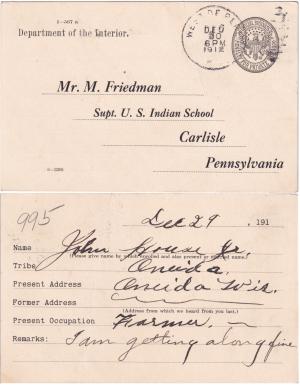 5-567 a
Department of the Interior.
DEC
30
6 PM
1912
Mr. M. Friedman
Supt. U. S. Indian School
Carlisle
Pennsylvania
995
Dec 29, 191
Name John House Jr.
(Please give name by which enrolled and also present or married name.)
Tribe Oneida.
Present Address Oneida Wis.
Former Address
(Address from which we heard from you last.)
Present Occupation Farmer.
Remarks: I am getting along fine